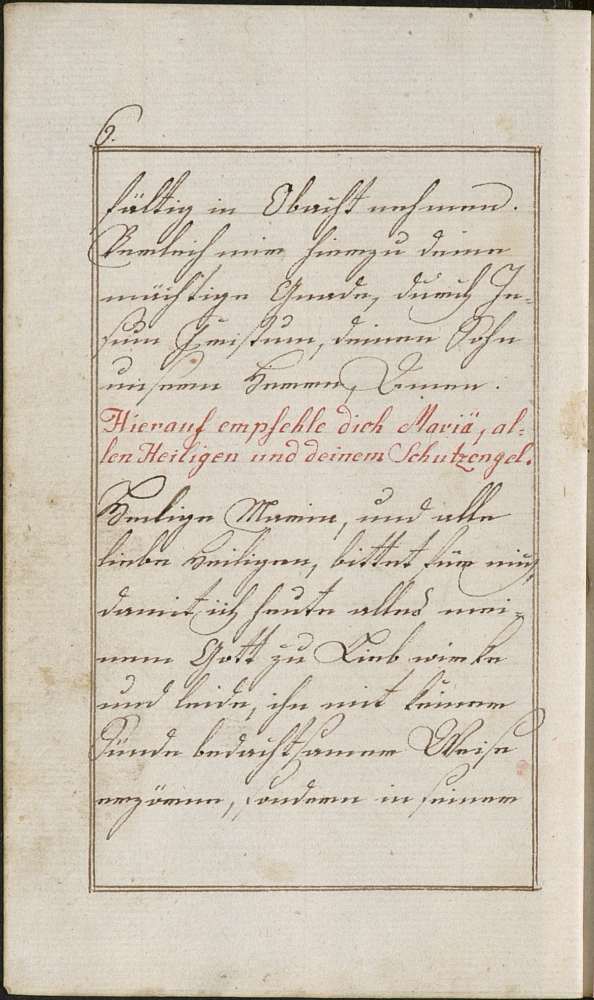 6.
fältig in Obacht nehmen.
Verleih mir hierzu deine
mächtige Gnade, durch Je-
sum Christum, deinen Sohn
unsern Herrn, Amen.
Hierauf empfehle dich Mariä, al-
len Heiligen und deinem Schutzengel.
Heilige Maria, und alle
liebe Heiligen, bittet für mich,
damit ich heute alles mei-
nem Gott zu Lieb wirke
und leide, ihn mit keiner
Sünde bedachtsamer Weise
erzörne, sondern in seiner